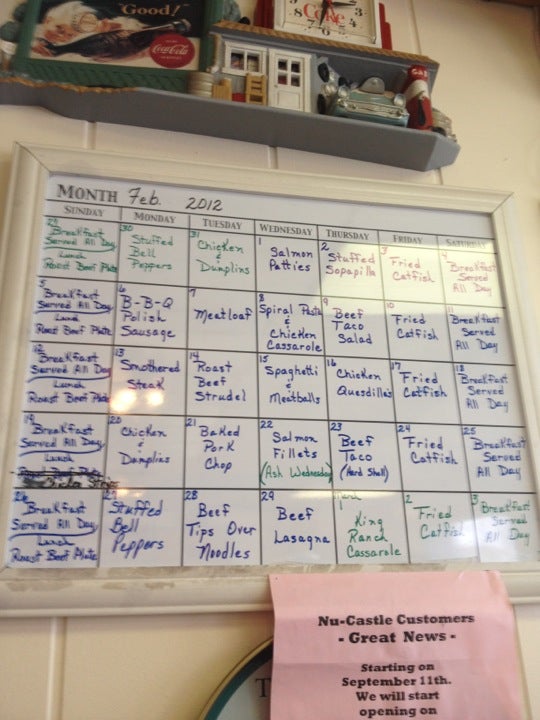 "Good!"
Coca-Cola
Coke
GAS
MONTH Feb. 2012
SUNDAY MONDAY TUESDAY WEDNESDAY THURSDAY FRIDAY SATURDAY
29 Breakfast
Served All Day
Lunch
Roast Beef Plate
30
Stuffed
Bell
Peppers
31
Chicken
&
Dumplins
1
Salmon
Patties
2
Stuffed
Sopapilla
3
Fried
Catfish
4
Breakfast
Served
All Day
5
Breakfast
Served All Day
Lunch
Roast Beef Plate
6
B-B-Q
Polish
Sausage
7
Meatloaf
8
Spiral Pasta
&
Chicken
Cassarole
9
Beef
Taco
Salad
10
Fried
Catfish
11
Breakfast
Served
All Day
12
Breakfast
Served All Day
Lunch
Roast Beef Plate
13
Smothered
Steak
14
Roast
Beef
Strudel
15
Spaghetti
&
Meatballs
16
Chicken
Quesdillas
17
Fried
Catfish
18
Breakfast
Served
All Day
19
Breakfast
Served All Day
Lunch
20
Chicken
&
Dumplins
21
Baked
Pork
Chop
22
Salmon
Fillets
(Ash Wednesday)
23
Beef
Taco
(Hard Shell)
24
Fried
Catfish
25
Breakfast
Served
All Day
26
Breakfast
Served All Day
Lunch
Roast Beef Plate
27
Stuffed
Bell
Peppers
28
Beef
Tips Over
Noodles
29
Beef
Lasagna
March
King
Ranch
Cassarole
2
Fried
Catfish
3
Breakfast
Served
All Day
Nu-Castle Customers
- Great News -
Starting on
September 11th.
We will start
opening on